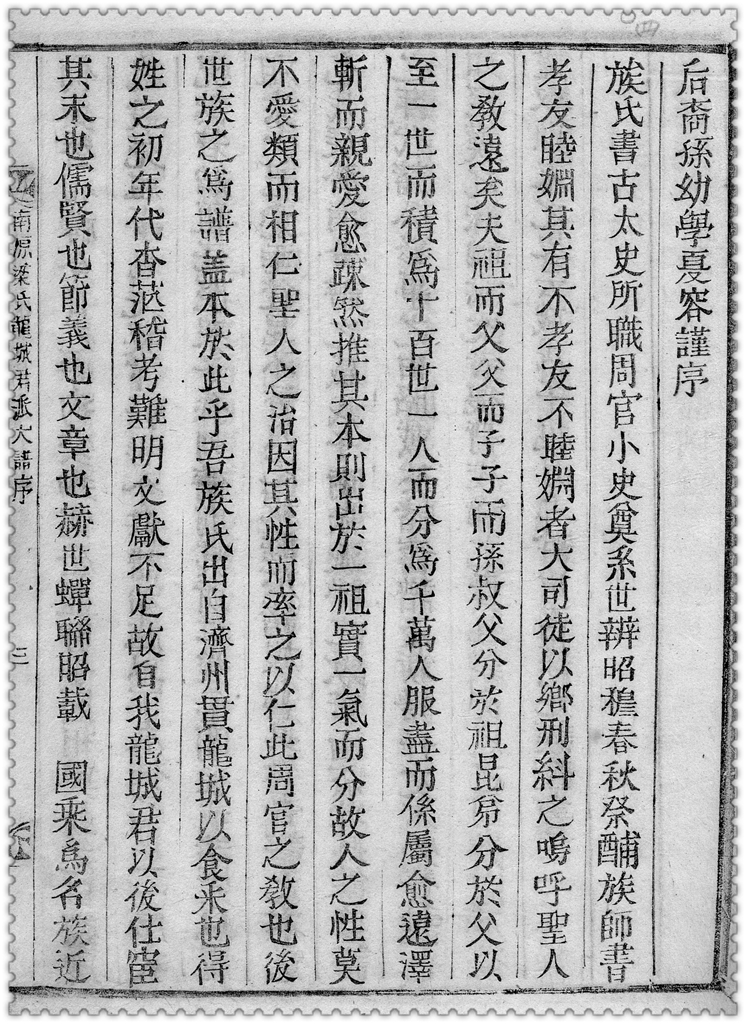 后裔孫幼學夏容謹序
族氏書古太史所職周官小史奠系世辨昭穆春秋祭酺族師書
孝友睦婣其有不孝友不睦婣者大司徒以鄉刑糾之嗚呼聖人
之敎遠矣夫祖而父父而子子而孫叔父分於祖昆弟分於父以
至一世而積爲十百世一人而分爲千萬人服盡而係屬愈遠澤
斬而親愛愈疎然推其本則出於一祖實一氣而分故人之性莫
不愛類而相仁聖人之治因其性而率之以仁此周官之敎也後
世族之爲譜盖本於此乎吾族氏出自濟州貫龍城以食采也得
姓之初年代杳茫稽考難明文獻不足故自我龍城君以後仕宦
其末也儒賢也節義也文章也赫世蟬聯昭載 國乘爲名族近
南原梁氏龍城君派大譜序 三